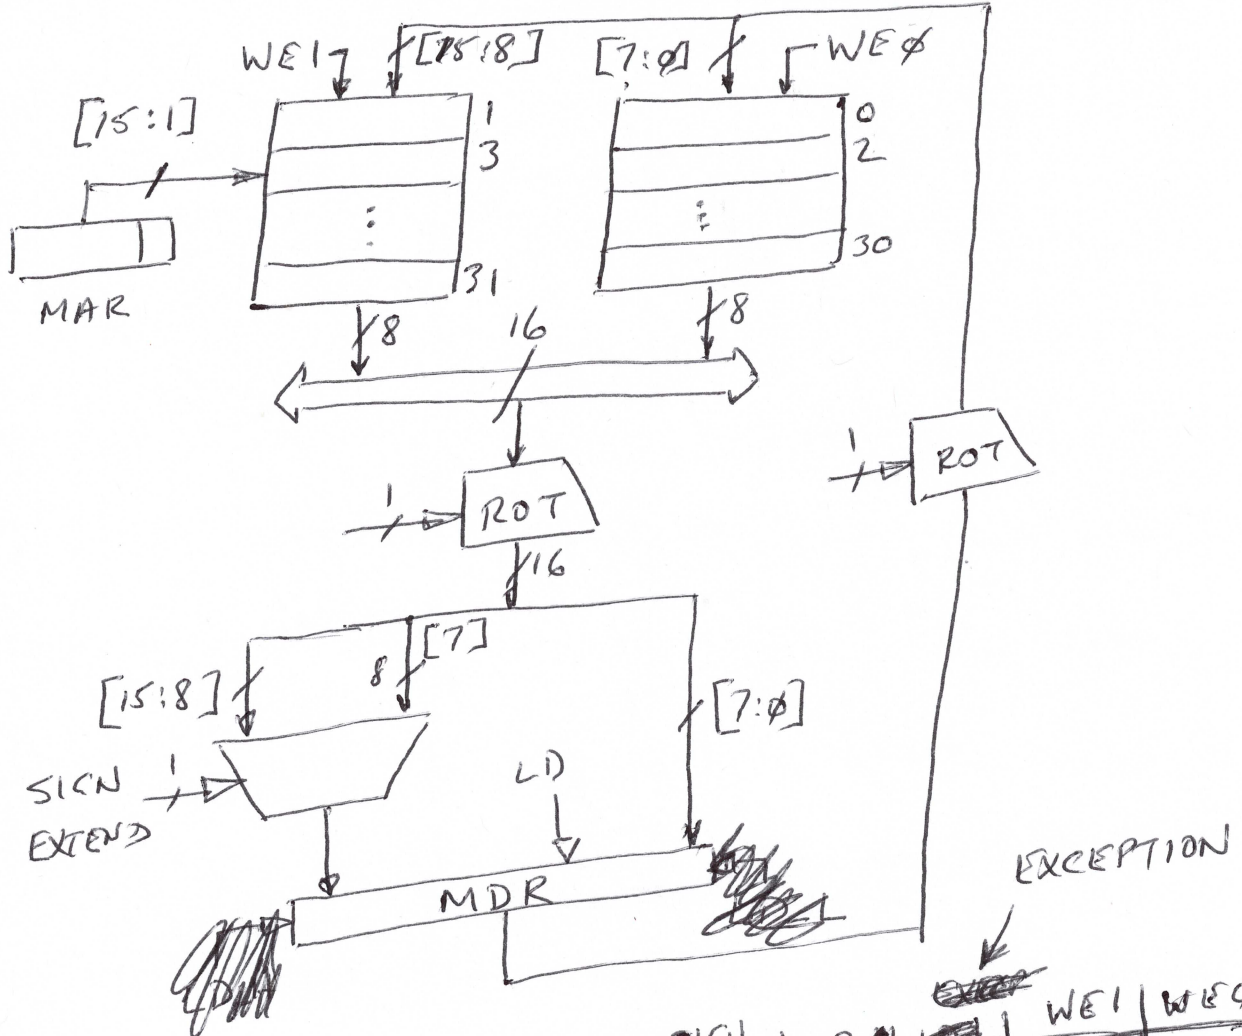 WE1 [15:8] [7:0] WE0
[15:1]
1 0
3 2
31 30
MAR
8 16 8
1 ROT
1 ROT
16
[15:8] 8 [7] [7:0]
1
SIGN
EXTEND
LD
MDR
EXCEPTION
WE1 WE